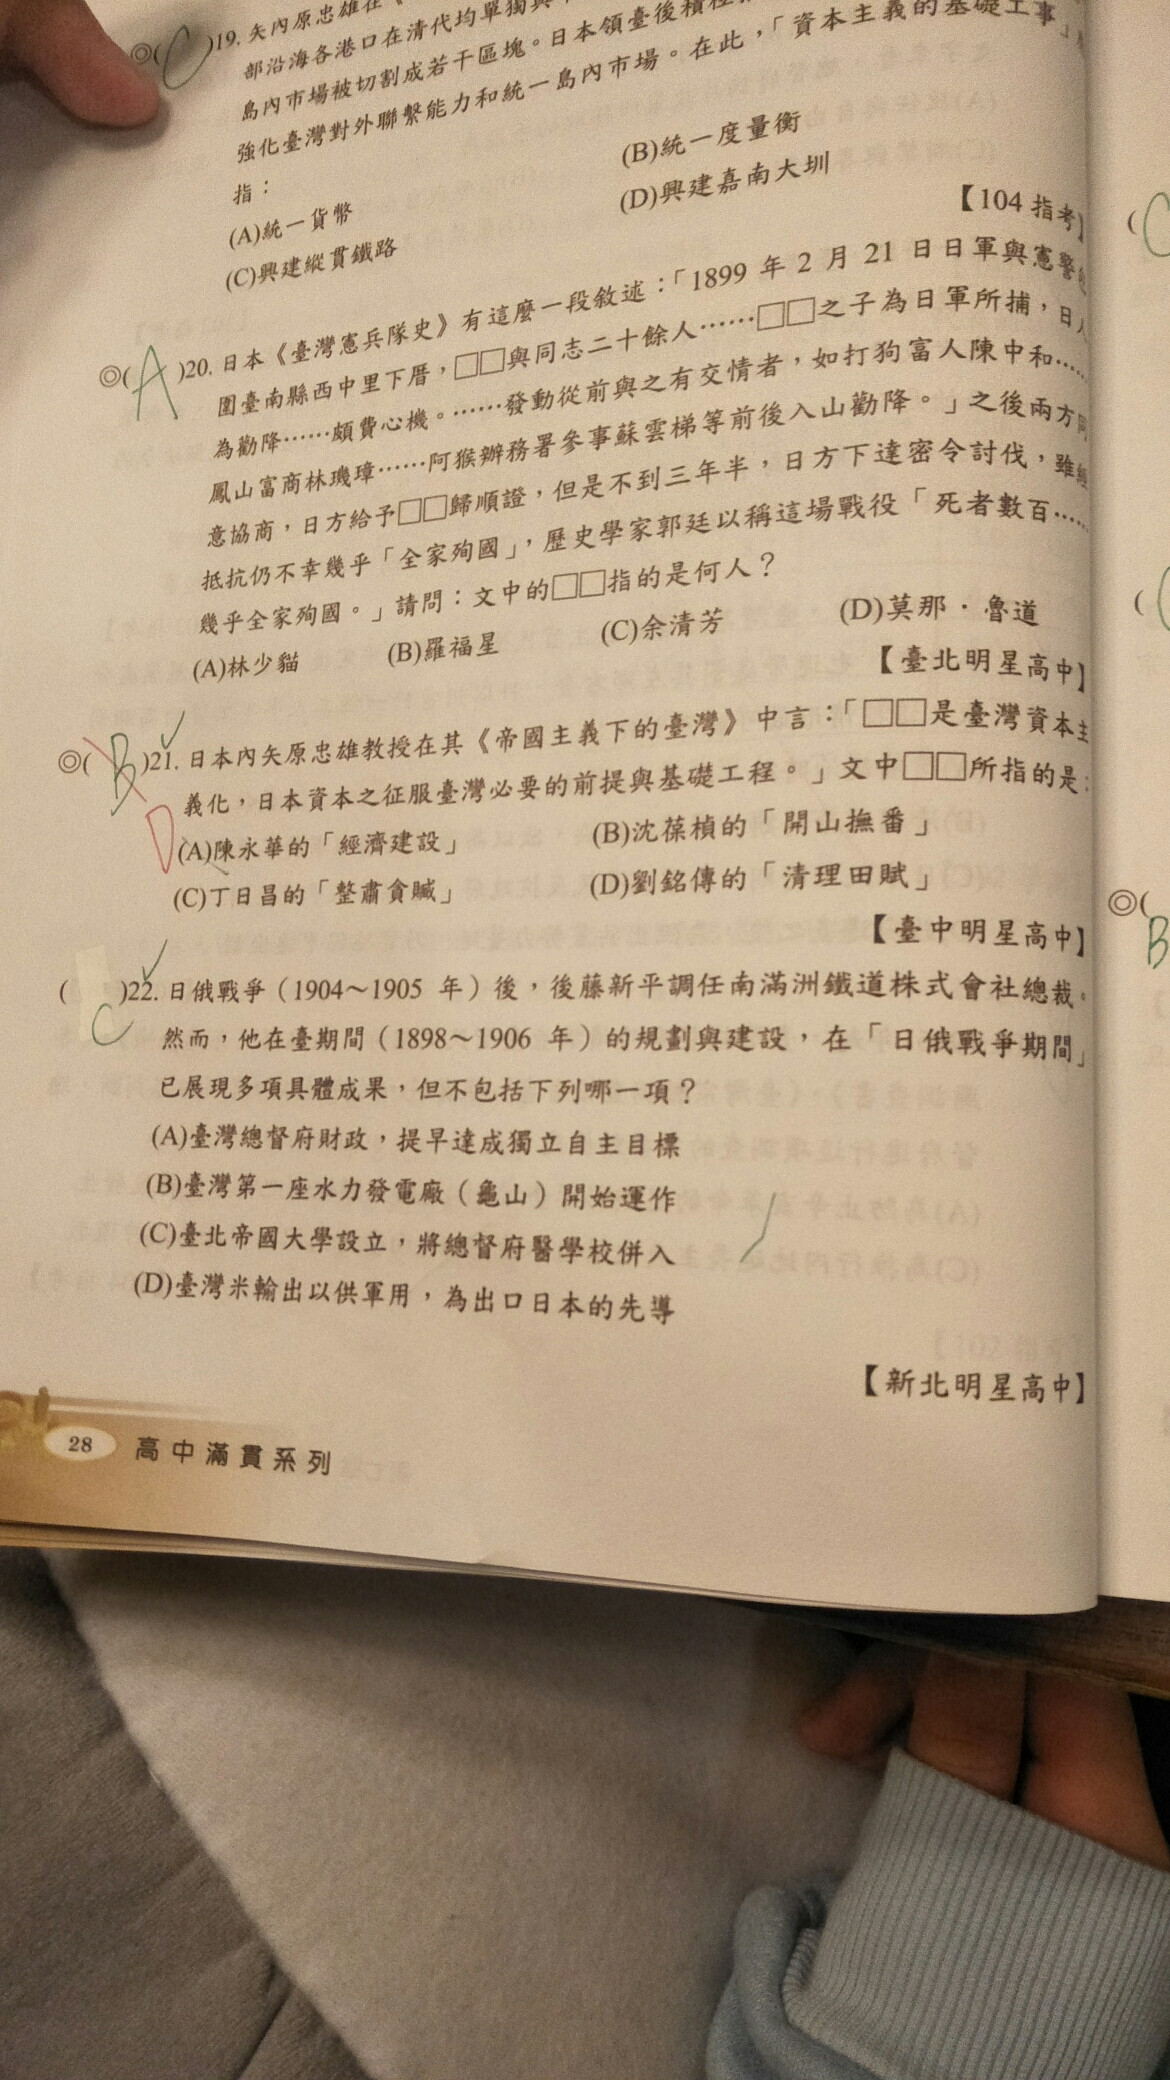 ◎( C )19. 矢內原忠雄在《
部沿海各港口在清代均單獨與
島內市場被切割成若干區塊。日本領臺後積極
強化臺灣對外聯繫能力和統一島內市場。在此,「資本主義的基礎工事」
指:
(A)統一貨幣 (B)統一度量衡
(C)興建縱貫鐵路 (D)興建嘉南大圳
【104 指考】
◎( A )20. 日本《臺灣憲兵隊史》有這麼一段敘述:「1899 年 2 月 21 日日軍與憲警
圍臺南縣西中里下厝,□□與同志二十餘人……□□之子為日軍所捕,日人
為勸降……頗費心機。……發動從前與之有交情者,如打狗富人陳中和……
鳳山富商林璣璋……阿猴辦務署參事蘇雲梯等前後入山勸降。」之後兩方同
意協商,日方給予□□歸順證,但是不到三年半,日方下達密令討伐,雖經
抵抗仍不幸幾乎「全家殉國」,歷史學家郭廷以稱這場戰役「死者數百……
幾乎全家殉國。」請問:文中的□□指的是何人?
(A)林少貓 (B)羅福星 (C)余清芳 (D)莫那‧魯道
【臺北明星高中】
◎( B )21. 日本內矢原忠雄教授在其《帝國主義下的臺灣》中言:「□□是臺灣資本主
D
義化,日本資本之征服臺灣必要的前提與基礎工程。」文中□□所指的是:
(A)陳永華的「經濟建設」 (B)沈葆楨的「開山撫番」
(C)丁日昌的「整肅貪贓」 (D)劉銘傳的「清理田賦」
【臺中明星高中】
( C )22. 日俄戰爭(1904~1905 年)後,後藤新平調任南滿洲鐵道株式會社總裁。
然而,他在臺期間(1898~1906 年)的規劃與建設,在「日俄戰爭期間」
已展現多項具體成果,但不包括下列哪一項?
(A)臺灣總督府財政,提早達成獨立自主目標
(B)臺灣第一座水力發電廠(龜山)開始運作
(C)臺北帝國大學設立,將總督府醫學校併入
(D)臺灣米輸出以供軍用,為出口日本的先導
【新北明星高中】
28 高中滿貫系列
( C
(
◎(
B